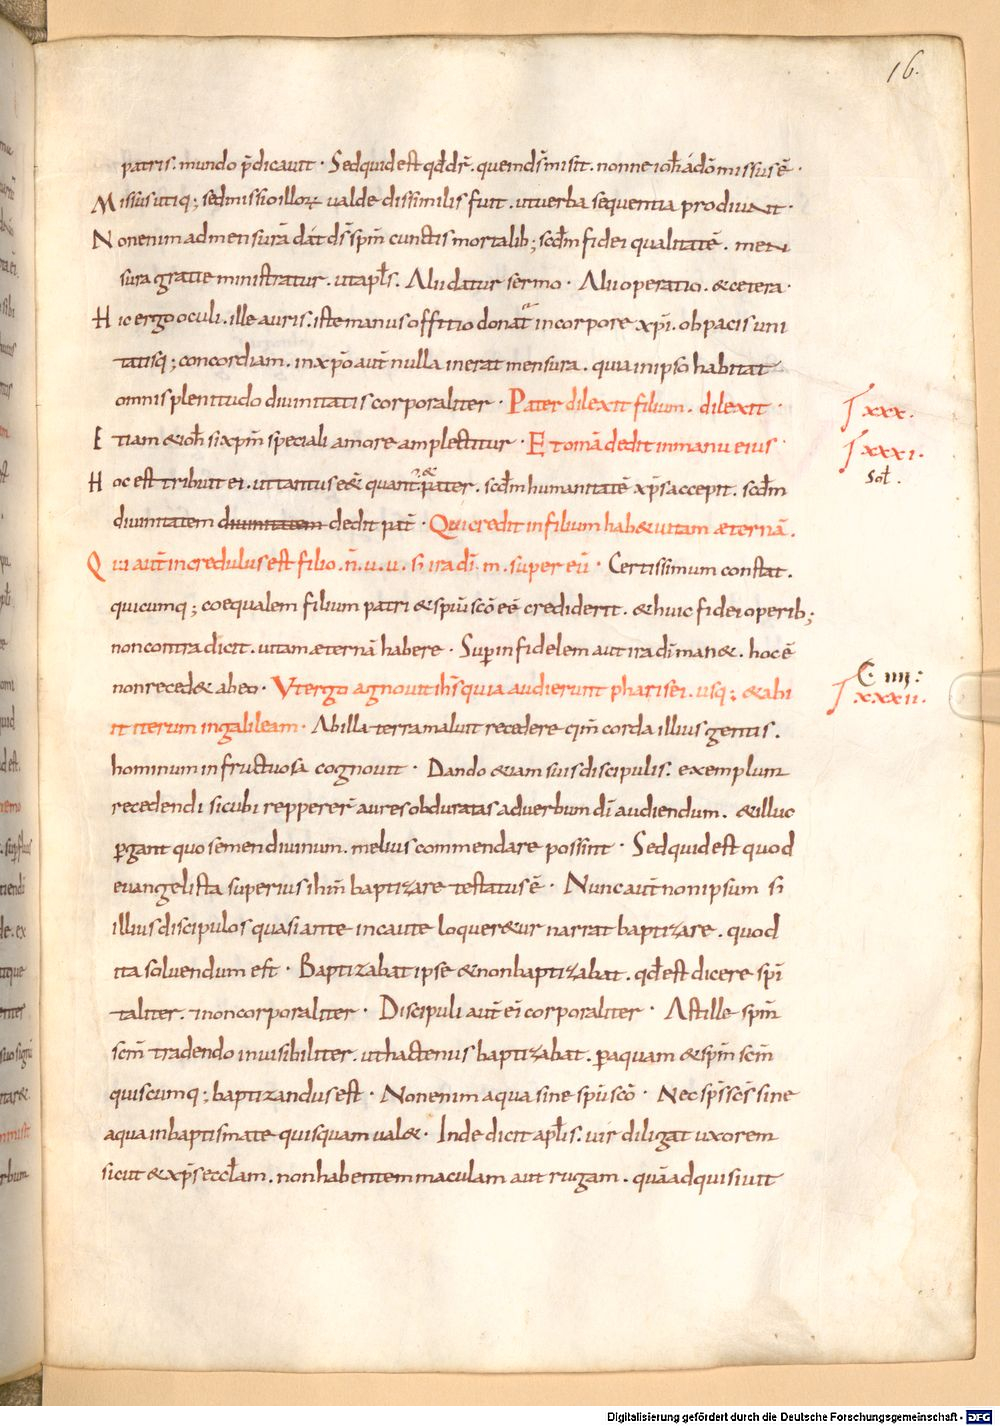 16.
patris. mundo p̄dicauit · Sed quid est qd̄ dr̄. quem ds̄ misit. nonne ioh̄ a dō missus ē ·
Missus utiq; sed missio illoꝝ valde dissimilis fuit. ut verba sequentia produnt ·
Non enim ad mensurā dat ds̄ sp̄m cunctis mortalib; scd̄m fidei qualitatē. men
sura gratie ministratur. ut apl̄s. Alii datur sermo · Alii operatio. & cetera ·
Hic ergo oculi. ille auris. iste manus offitio donat in corpore xp̄i. ob pacis uni
tatisq; concordiam. in xp̄o aut̄ nulla inerat mensura. quia in ipso habitat
omnis plenitudo diuinitatis corporaliter · Pater dilexit filium. dilexit ·
xxx.
Etiam & ioh̄ si xp̄m speciali amore amplectitur · Et omā dedit in manu eius ·
xxxi.
Hoc est tribuit ei. ut tantus eēt quant; & pater. scd̄m humanitatē xp̄s accepit. scd̄m
Sol̄.
diuinitatem diuinitatem dedit pat̄ · Qui credit in filium hab& uitam æternā.
Qui aut̄ incredulus est filio. n̄. u. u. s; ira dī. m. super eū · Certissimum constat.
quicumq; coequalem filium patri & sp̄ui scō eē crediderit. & huic fidei operib;
non contradicit. uitam æternā habere · Sup infidelem aut̄ ira dī man&. hoc ē
non reced& ab eo. Vt ergo agnouit ih̄s quia audierunt pharisei. usq; & abi
C. iiii:
xxxii.
it iterum in galileam · Ab illa terra maluit recedere cum corda illius gentis.
hominum infructuosa cognouit · Dando &iam suis discipulis. exemplum
recedendi sicubi reppererr̄ aures obduratas ad verbum dī audiendum. & illuc
ꝑgant quo semen diuinum. melius commendare possint · Sed quid est quod
euangelista superius ihm̄ baptizare testatus ē · Nunc aut̄ non ipsum s;
illius discipulos quasi ante incaute loquer&ur narrat baptizare. quod
ita soluendum est · Baptizabat ipse & non baptizabat. qd̄ est dicere sp̄i
taliter. & non corporaliter · Discipuli aut̄ ei corporaliter · Ast ille sp̄m
scm̄ tradendo inuisibiliter. ut hactenus baptizabat. ꝑ aquam & sp̄m scm̄
quiscumq; baptizandus est · Non enim aqua sine sp̄u scō · Nec sp̄s scs̄ sine
aqua in baptismate quisquam ual& · Inde dicit apl̄s. uir diligat uxorem
sicut & xp̄s eccl̄am. non habentem maculam aut rugam. quā adquisiuit
Digitalisierung gefördert durch die Deutsche Forschungsgemeinschaft - DFG